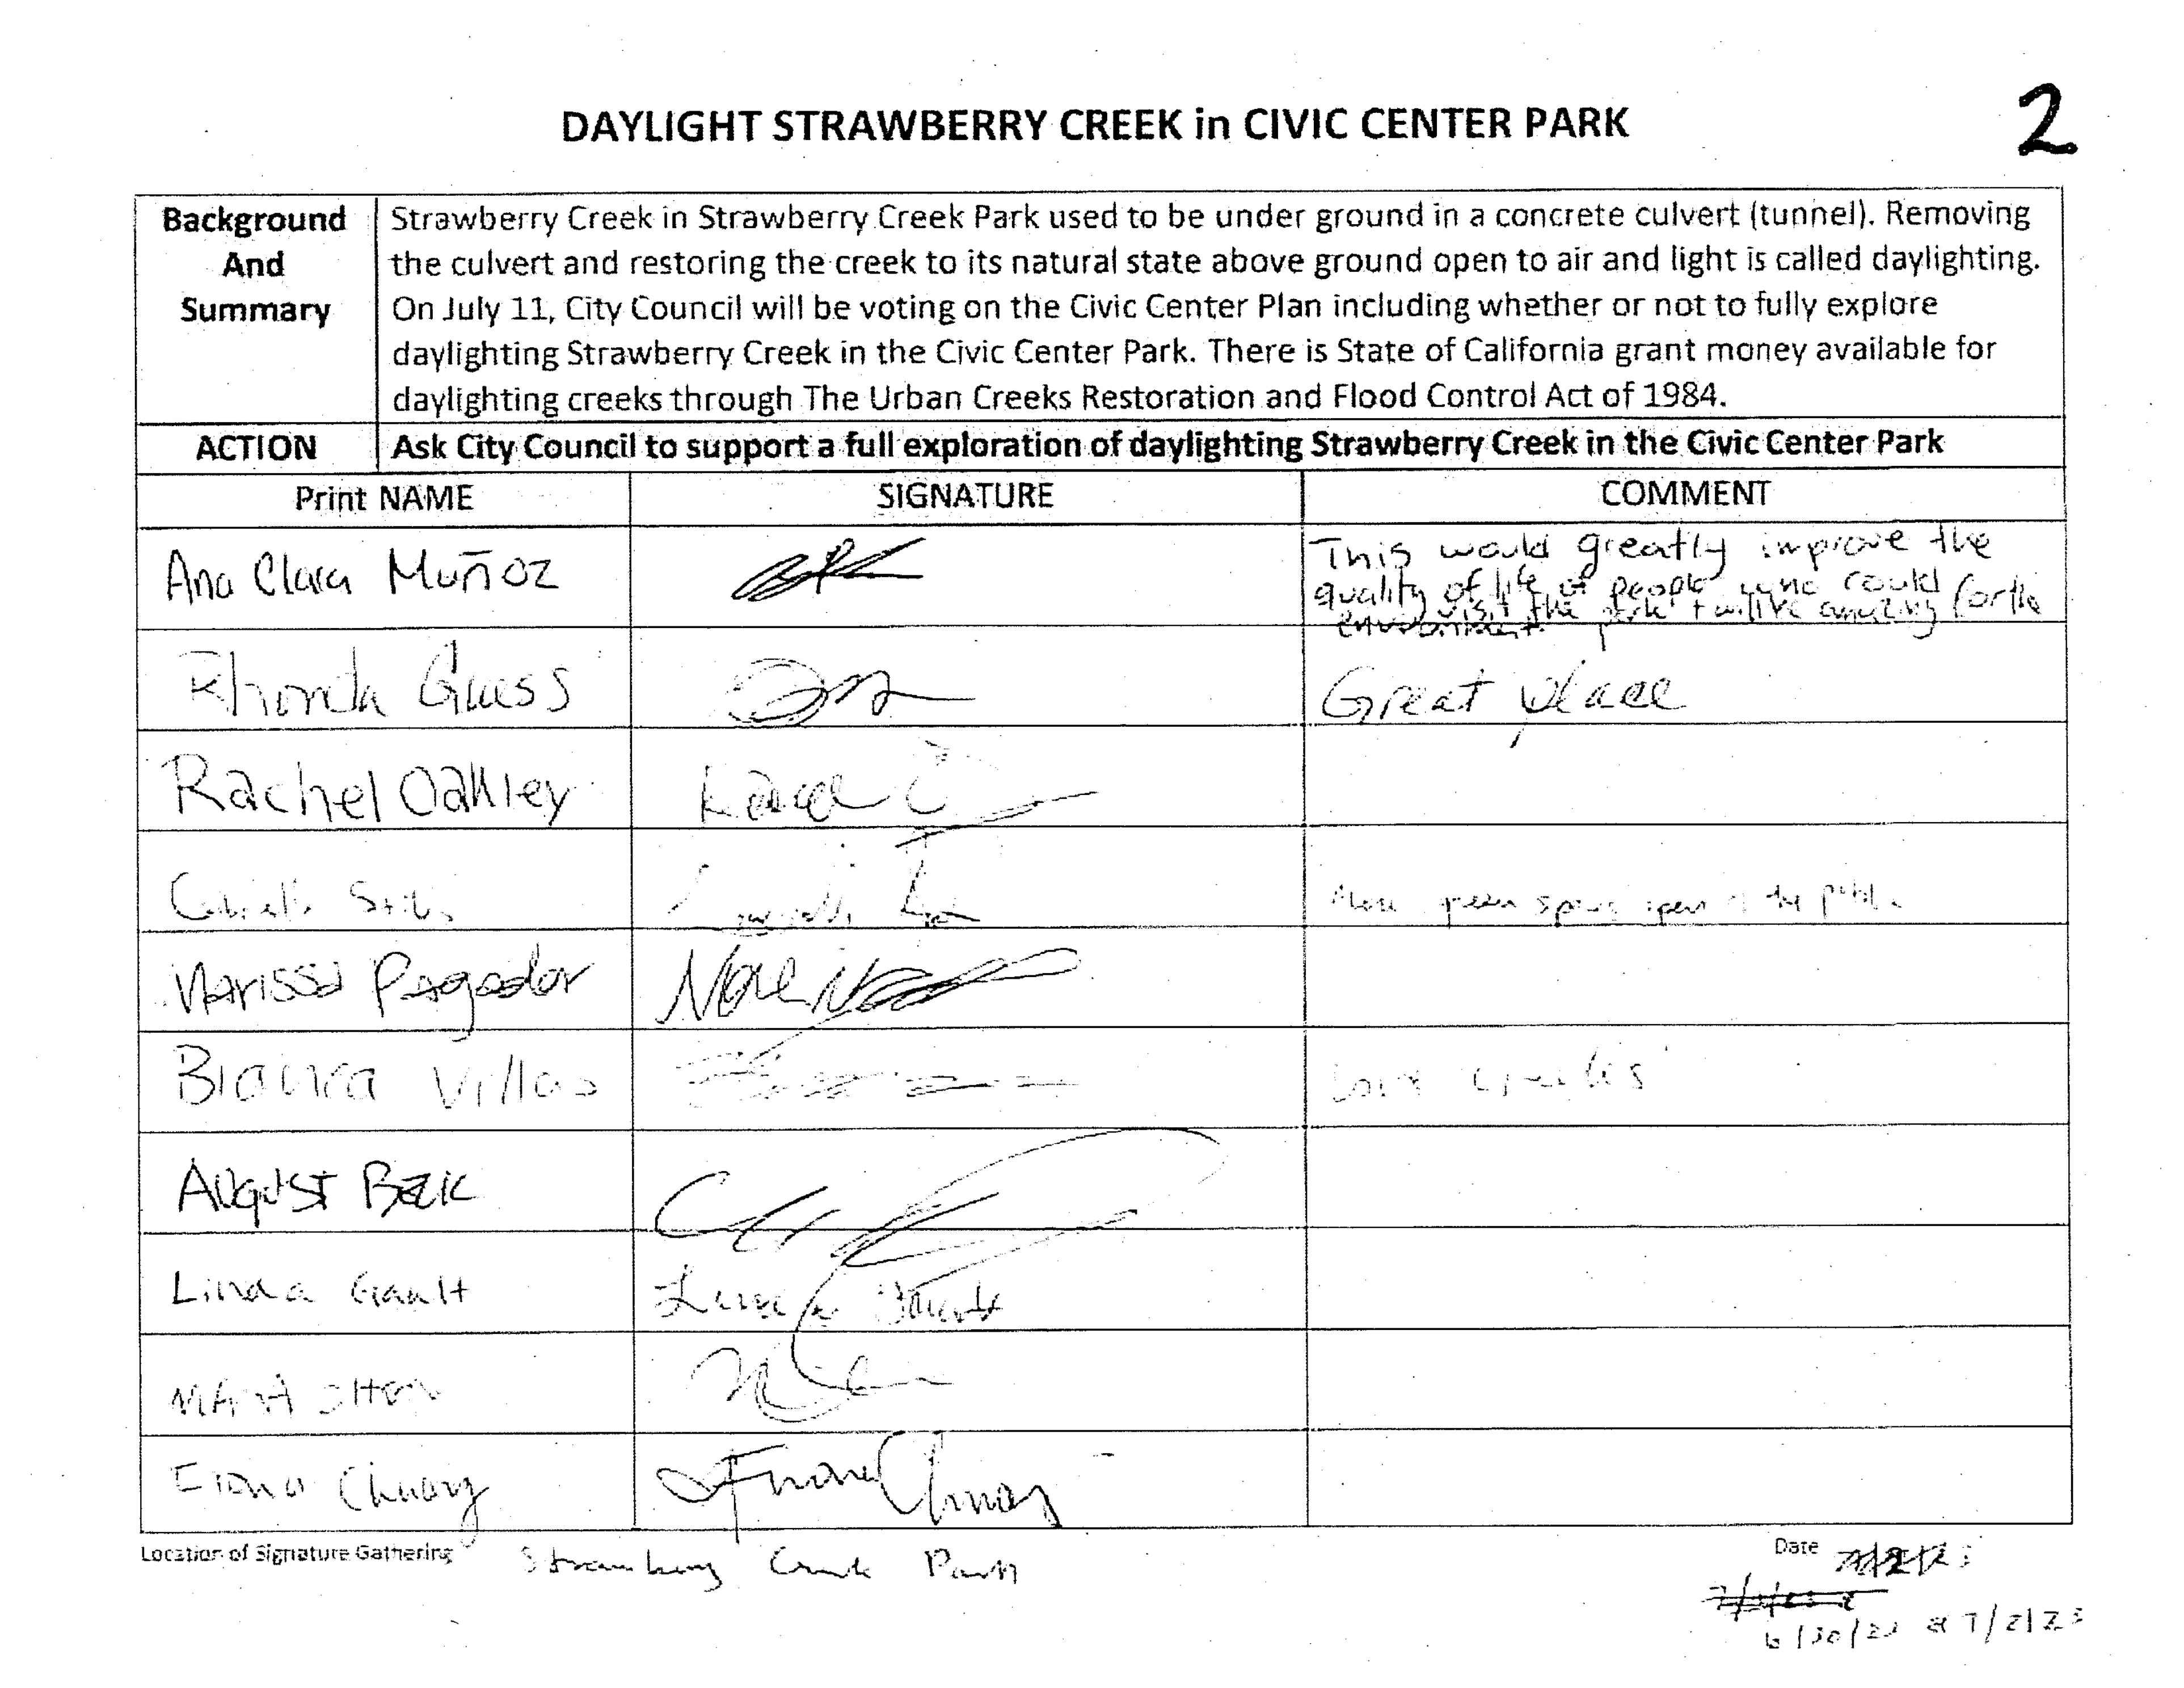 DAYLIGHT STRAWBERRY CREEK in CIVIC CENTER PARK
2
Background And Summary
Strawberry Creek in Strawberry Creek Park used to be under ground in a concrete culvert (tunnel). Removing
the culvert and restoring the creek to its natural state above ground open to air and light is called daylighting.
On July 11, City Council will be voting on the Civic Center Plan including whether or not to fully explore
daylighting Strawberry Creek in the Civic Center Park. There is State of California grant money available for
daylighting creeks through The Urban Creeks Restoration and Flood Control Act of 1984.
ACTION Ask City Council to support a full exploration of daylighting Strawberry Creek in the Civic Center Park
Print NAME SIGNATURE COMMENT
Ana Clara Muñoz
This would greatly improve the
quality of life of people who could
visit the park + will be amazing for the
environment.
Rhonda Guess Great place
Rachel Oakley
More green space open to the public
Marissa Pagador
Bianca Villas Love creeks
August
Linda Gault Linda Gault
Fiona Chuang Fiona Chuang
Location of Signature Gathering Strawberry Creek Park
Date
6/30/23 & 7/2/23